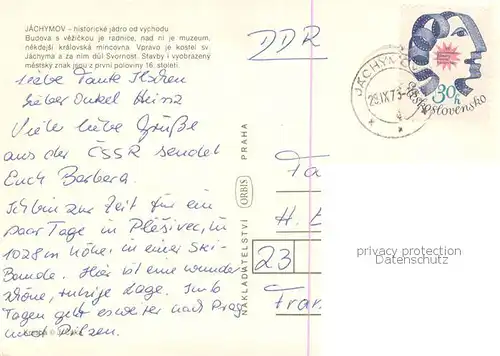 JÁCHYMOV – historické jádro od východu
Budova s věžičkou je radnice, nad ní je muzeum,
někdejší královská mincovna. Vpravo je kostel sv.
Jáchyma a za ním důl Svornost. Stavby i vyobrazený
městský znak jsou z první poloviny 16. století.
Liebe Tante
Lieber Onkel Heinz
Viele liebe Grüße
aus der ČSSR sendet
Euch Barbara.
Ich bin zur Zeit für ein
paar Tage in Plešivec, in
1028 m Höhe, in einer Ski-
Baude. Hier ist eine wunder
schöne, ruhige Lage. In 6
Tagen geht es weiter nach Prag
und Pilzen.
NAKLADATELSTVÍ ORBIS PRAHA
DDR
JÁCHYMOV
30h
Československo
Fa
H. B
23
Fran
privacy protection
Datenschutz